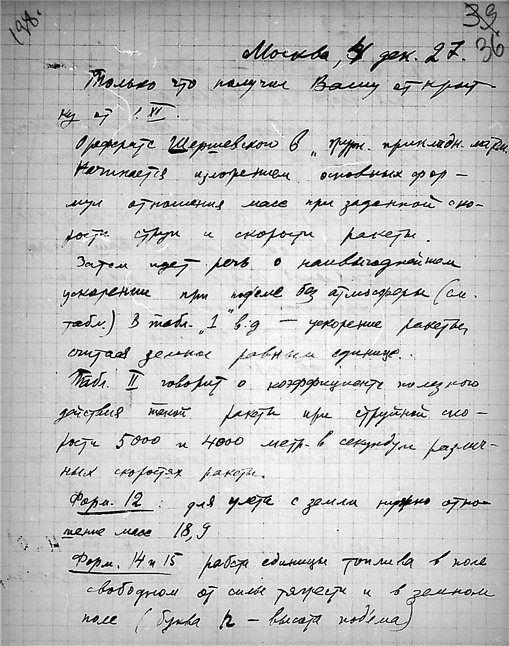 198.
39
36
Москва, 4 дек. 27.
Только что получил Вашу открыт-
ку от 1.XII.
О реферате Шершевского в „журн. прикладн. матем.
Начинается изложением основных фор-
мул отношения масс при заданной ско-
рости струи и скорости ракеты.
Затем идет речь о наивыгоднейшем
ускорении при подеме без атмосферы (см.
табл.) В табл. „1" в:g — ускорение ракеты,
считая земное равным единице.
Табл. II говорит о коэффициенте полезного
действия такой ракеты при струйной ско-
рости 5000 и 4000 метр. в секунду и различ-
ных скоростях ракеты.
Форм. 12 : для улета с земли нужно отно-
шение масс 18,9
Форм. 14 и 15 работа единицы топлива в поле
свободном от силы тяжести и в земном
поле (буква h — высота подема)